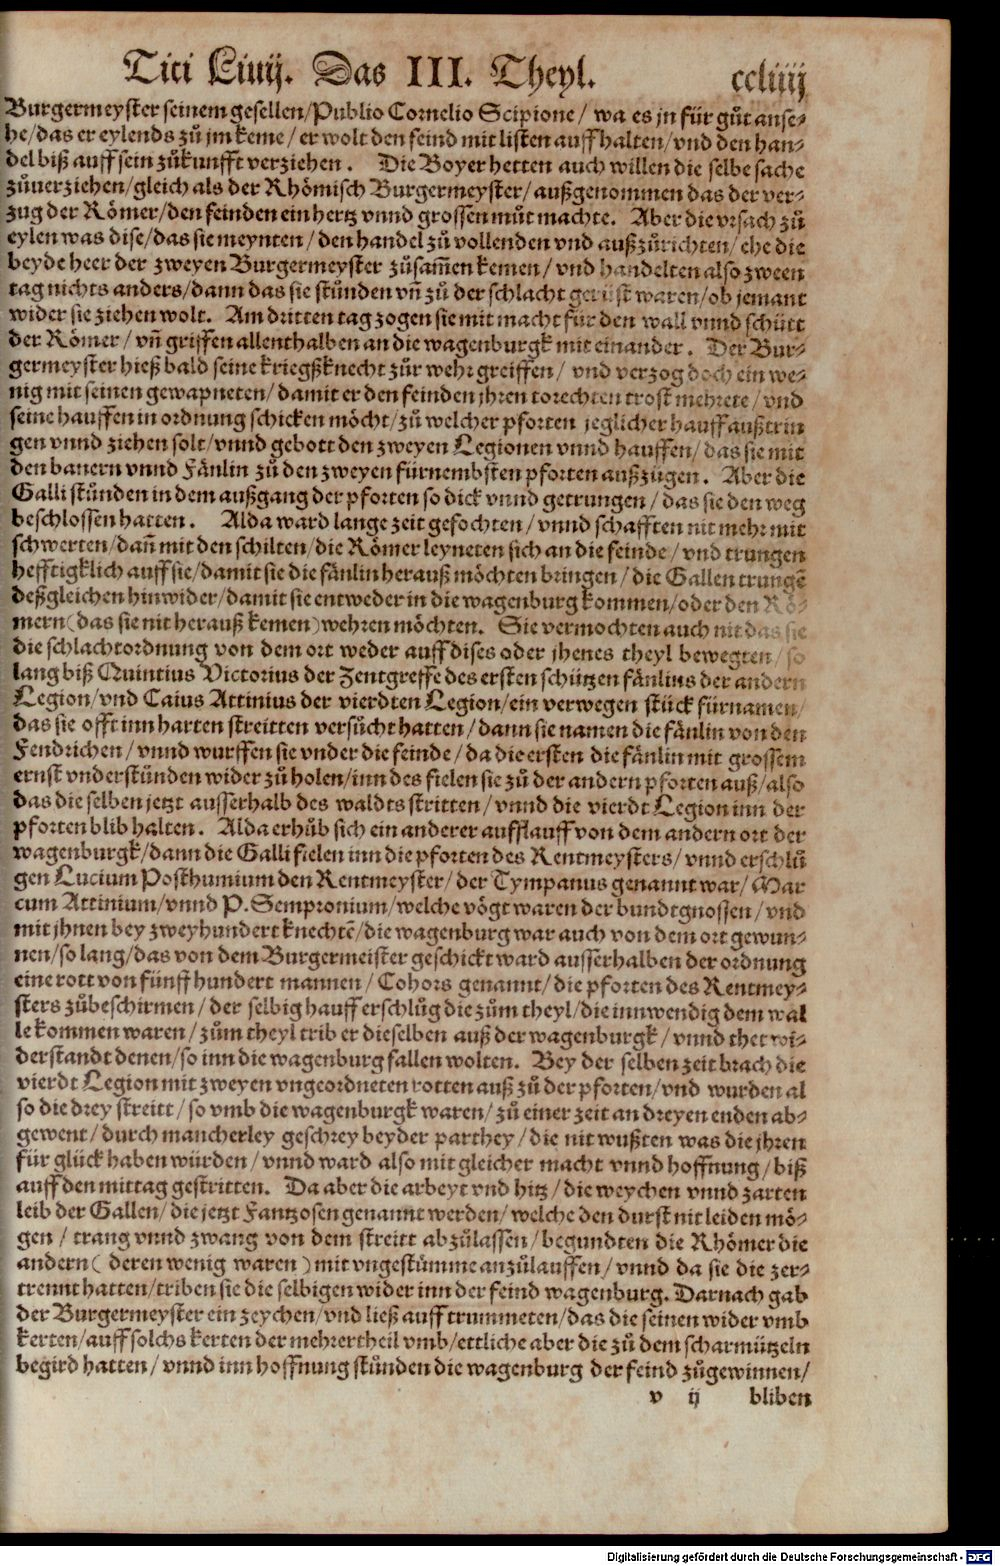 Titi Liuij. Das III. Theyl. ccliiij
Burgermeyster seinem gesellen/Publio Cornelio Scipione/ wa es jn für gůt anse⸗
he/das er eylends zů jm keme/ er wolt den feind mit listen auffhalten/ vnd den han⸗
del biß auff sein zůkunfft verziehen. Die Boyer hetten auch willen die selbe sache
zůuerziehen/gleich als der Rhömisch Burgermeyster/ außgenommen das der ver⸗
zug der Römer/den feinden ein hertz vnnd grossen můt machte. Aber die vrsach zů
eylen was dise/das sie meynten/ den handel zů vollenden vnd außzůrichten/ ehe die
beyde heer der zweyen Burgermeyster zůsam̃en kemen/ vnd handelten also zween
tag nichts anders/dann das sie stůnden vñ zů der schlacht gerüst waren/ob jemant
wider sie ziehen wolt. Am dritten tag zogen sie mit macht für den wall vnnd schütt
der Römer/ vñ griffen allenthalben an die wagenburgk mit einander. Der Bur⸗
germeyster hieß bald seine kriegßknecht zůr wehr greiffen/ vnd verzog doch ein we⸗
nig mit seinen gewapneten/ damit er den feinden jhren torechten trost mehrete/ vnd
seine hauffen in ordnung schicken möcht/zů welcher pforten jeglicher hauff außtrin
gen vnnd ziehen solt/vnnd gebott den zweyen Legionen vnnd hauffen/ das sie mit
den banern vnnd Fänlin zů den zweyen fürnembsten pforten außzügen. Aber die
Galli stůnden in dem außgang der pforten so dick vnnd getrungen/ das sie den weg
beschlossen hatten. Alda ward lange zeit gefochten/ vnnd schafften nit mehr mit
schwerten/dañ mit den schilten/die Römer leyneten sich an die feinde/ vnd trungen
hefftigklich auff sie/damit sie die fänlin herauß möchten bringen/ die Gallen trungẽ
deßgleichen hinwider/damit sie entweder in die wagenburg kommen/oder den Rö⸗
mern(das sie nit herauß kemen)wehren möchten. Sie vermochten auch nit das sie
die schlachtordnung von dem ort weder auff dises oder jhenes theyl bewegten/ so
lang biß Quintius Victorius der Zentgreffe des ersten schützen fänlins der andern
Legion/vnd Caius Attinius der vierdten Legion/ein verwegen stück fürnamen/
das sie offt inn harten streitten versůcht hatten/ dann sie namen die fänlin von den
Fendrichen/ vnnd wurffen sie vnder die feinde/ da die ersten die fänlin mit grossem
ernst vnderstůnden wider zů holen/inn des fielen sie zů der andern pforten auß/also
das die selben jetzt ausserhalb des waldts stritten/ vnnd die vierdt Legion inn der
pforten blib halten. Alda erhůb sich ein anderer aufflauff von dem andern ort der
wagenburgk/dann die Galli fielen inn die pforten des Rentmeysters/ vnnd erschlů
gen Lucium Posthumium den Rentmeyster/ der Tympanus genannt war/ Mar
cum Attinium/vnnd P. Sempronium/welche vögt waren der bundtgnossen/ vnd
mit jhnen bey zweyhundert knechtẽ/die wagenburg war auch von dem ort gewun⸗
nen/so lang/das von dem Burgermeister geschickt ward ausserhalben der ordnung
eine rott von fünffhundert mannen/ Cohors genannt/ die pforten des Rentmey⸗
sters zůbeschirmen/ der selbig hauff erschlůg die zům theyl/die innwendig dem wal
le kommen waren/ zům theyl trib er dieselben auß der wagenburgk/ vnnd thet wi⸗
derstandt denen/so inn die wagenburg fallen wolten. Bey der selben zeit brach die
vierdt Legion mit zweyen vngeordneten rotten auß zů der pforten/vnd wurden al
so die drey streitt/ so vmb die wagenburgk waren/ zů einer zeit an dreyen enden ab⸗
gewent/ durch mancherley geschrey beyder parthey/ die nit wußten was die jhren
für glück haben würden/ vnnd ward also mit gleicher macht vnnd hoffnung/ biß
auff den mittag gestritten. Da aber die arbeyt vnd hitz/ die weychen vnnd zarten
leib der Gallen/die jetzt Fantzosen genannt werden/ welche den durst nit leiden mö⸗
gen/ trang vnnd zwang von dem streitt abzůlassen/ begundten die Rhömer die
andern( deren wenig waren ) mit vngestümme anzůlauffen/ vnnd da sie die zer⸗
trennt hatten/triben sie die selbigen wider inn der feind wagenburg. Darnach gab
der Burgermeyster ein zeychen/vnd ließ auff trummeten/das die seinen wider vmb
kerten/auff solchs kerten der mehrertheil vmb/ettliche aber die zů dem scharmützeln
begird hatten/ vnnd inn hoffnung stůnden die wagenburg der feind zůgewinnen/
v ij bliben
Digitalisierung gefördert durch die Deutsche Forschungsgemeinschaft - DFG